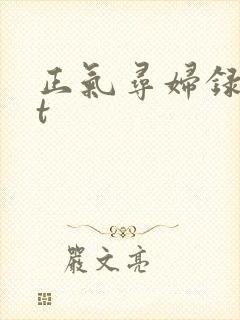 正氣尋婦録
t
嚴文亮